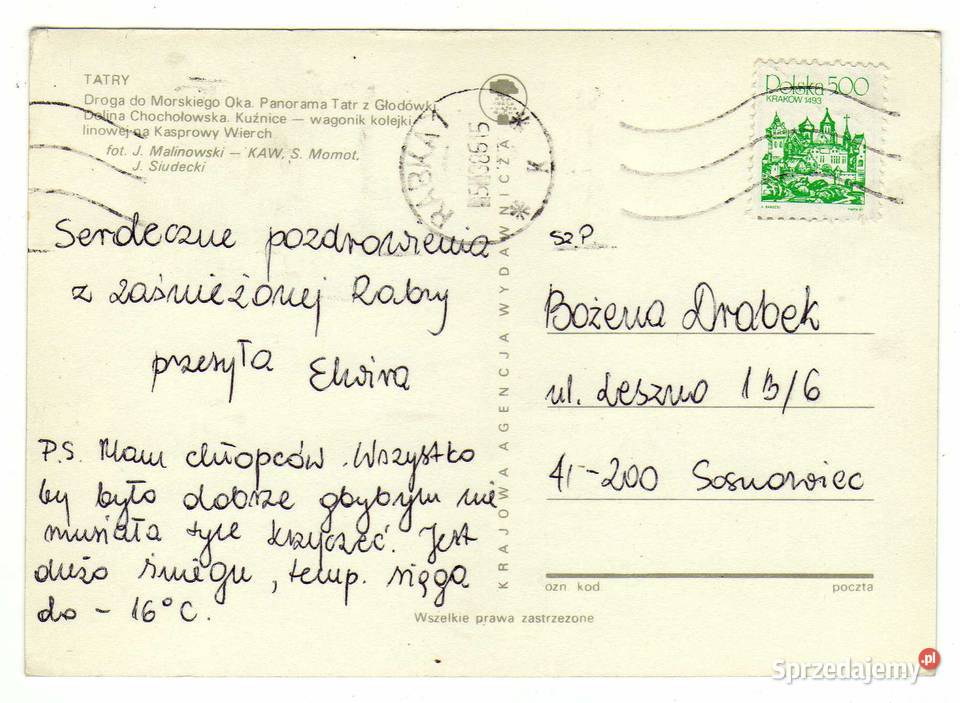 TATRY
Droga do Morskiego Oka. Panorama Tatr z Głodówki
Dolina Chochołowska. Kuźnice — wagonik kolejki
linowej na Kasprowy Wierch
fot. J. Malinowski — KAW, S. Momot,
J. Siudecki
Serdeczne pozdrowienia
z zaśnieżonej Rabry
przesyła Elwira
P.S. Mam chłopców. Wszystko
by było dobrze gdybym nie
musiała tyle krzyczeć. Jest
dużo śniegu, temp. sięga
do - 16°C.
RABKA 1
KRAJOWA AGENCJA WYDAWNICZA
Polska 500
KRAKÓW 1493
Sz.P.
Bożena Drabek
ul. Leszno 1B/6
41-200 Sosnowiec
ozn. kod
poczta
Wszelkie prawa zastrzeżone
Sprzedajemy.pl